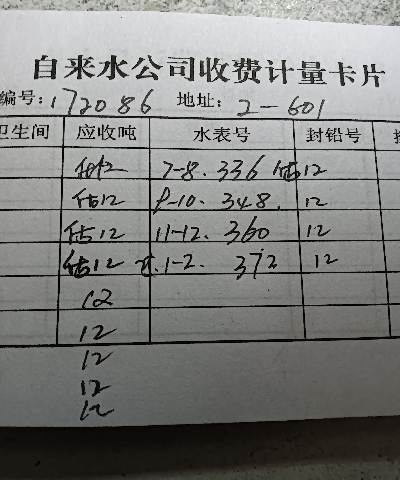 自来水公司收费计量卡片
编号:172086 地址: 2-601
卫生间 应收吨 水表号 封铅号
估12 7-8. 336 估12
估12 9-10. 348. 12
估12 11-12. 360 12
估12 1-2. 372 12
12
12
12
12
12